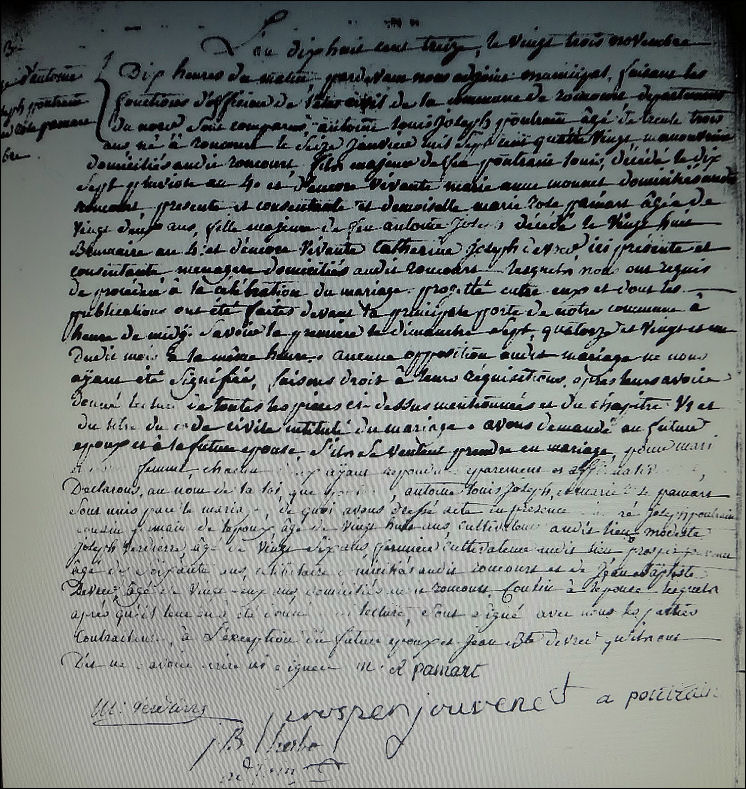 L'an dix huit cent treize, le vingt trois novembre
d'antoine
Dix heures du matin pardevant nous adjoint municipal, faisant les
joseph poutrain
fonctions d'officier de l'état civil de la commune de roncourt departement
pamart
du nord sont comparus antoine louis joseph poutrain âgé de trente trois
ans né à roncourt le seize janvier mil sept cent quatre vingt, manouvrier
domiciliés audit roncourt fils majeur de feu poutrain louis, décédé le dix
sept an 40 et d'encore vivante marie anne monnet domiciliés audit
roncourt presente et consentante et demoiselle marie rose pamart âgée de
vingt deux ans, fille majeure de feu antoine joseph décédé le vingt huit
Brumaire an 4 et d'encore vivante Catherine Joseph devred ici presente et
consentante menagere domiciliés audit roncourt lesquels nous ont requis
de procéder à la célébration du mariage projetté entre eux et dont les
publications ont été faites devant la principale porte de notre commune à
heure de midy. Savoir la première le dimanche sept, quatorze et vingt et un
Dudit mois à la même heure aucune opposition audit mariage ne nous
ayant été signifiée, faisons droit à leurs réquisitions, après leur avoir
donné lecture de toutes les pieces ci dessus mentionnées et du chapitre VI et
du titre du code civile intitulé du mariage avons demandé au futur
epoux et à la future epouse, s'ils se veulent prendre en mariage, pour mari
femme, chacun d'eux ayant repondu separement et affirmativement
Declarons, au nom de la loi, que antoine louis Joseph, et marie pamart
sont unis par le mariage, de quoi avons dressé acte en presence joseph poutrain
cousin germain de l'epoux, âgé de vingt huit ans cultivateur audit lieu, modeste
joseph âgé de vingt six ans, fermier cultivateur audit lieu prosper jouvenet
âgé de soixante ans, domiciliés audit roncourt et de Jean Baptiste
Devred âgé de vingt deux ans domiciliés audit roncourt Cousin à l'epouse lesquels
après qu'il leur en a été donné lecture, ont signé avec nous les parties
Contractantes, à l'exception du futur epoux et Jean Bte devred qui nous ont
Dit ne savoir ecrire ni signer m. R pamart
prosper jouvenet a poutrain
J B